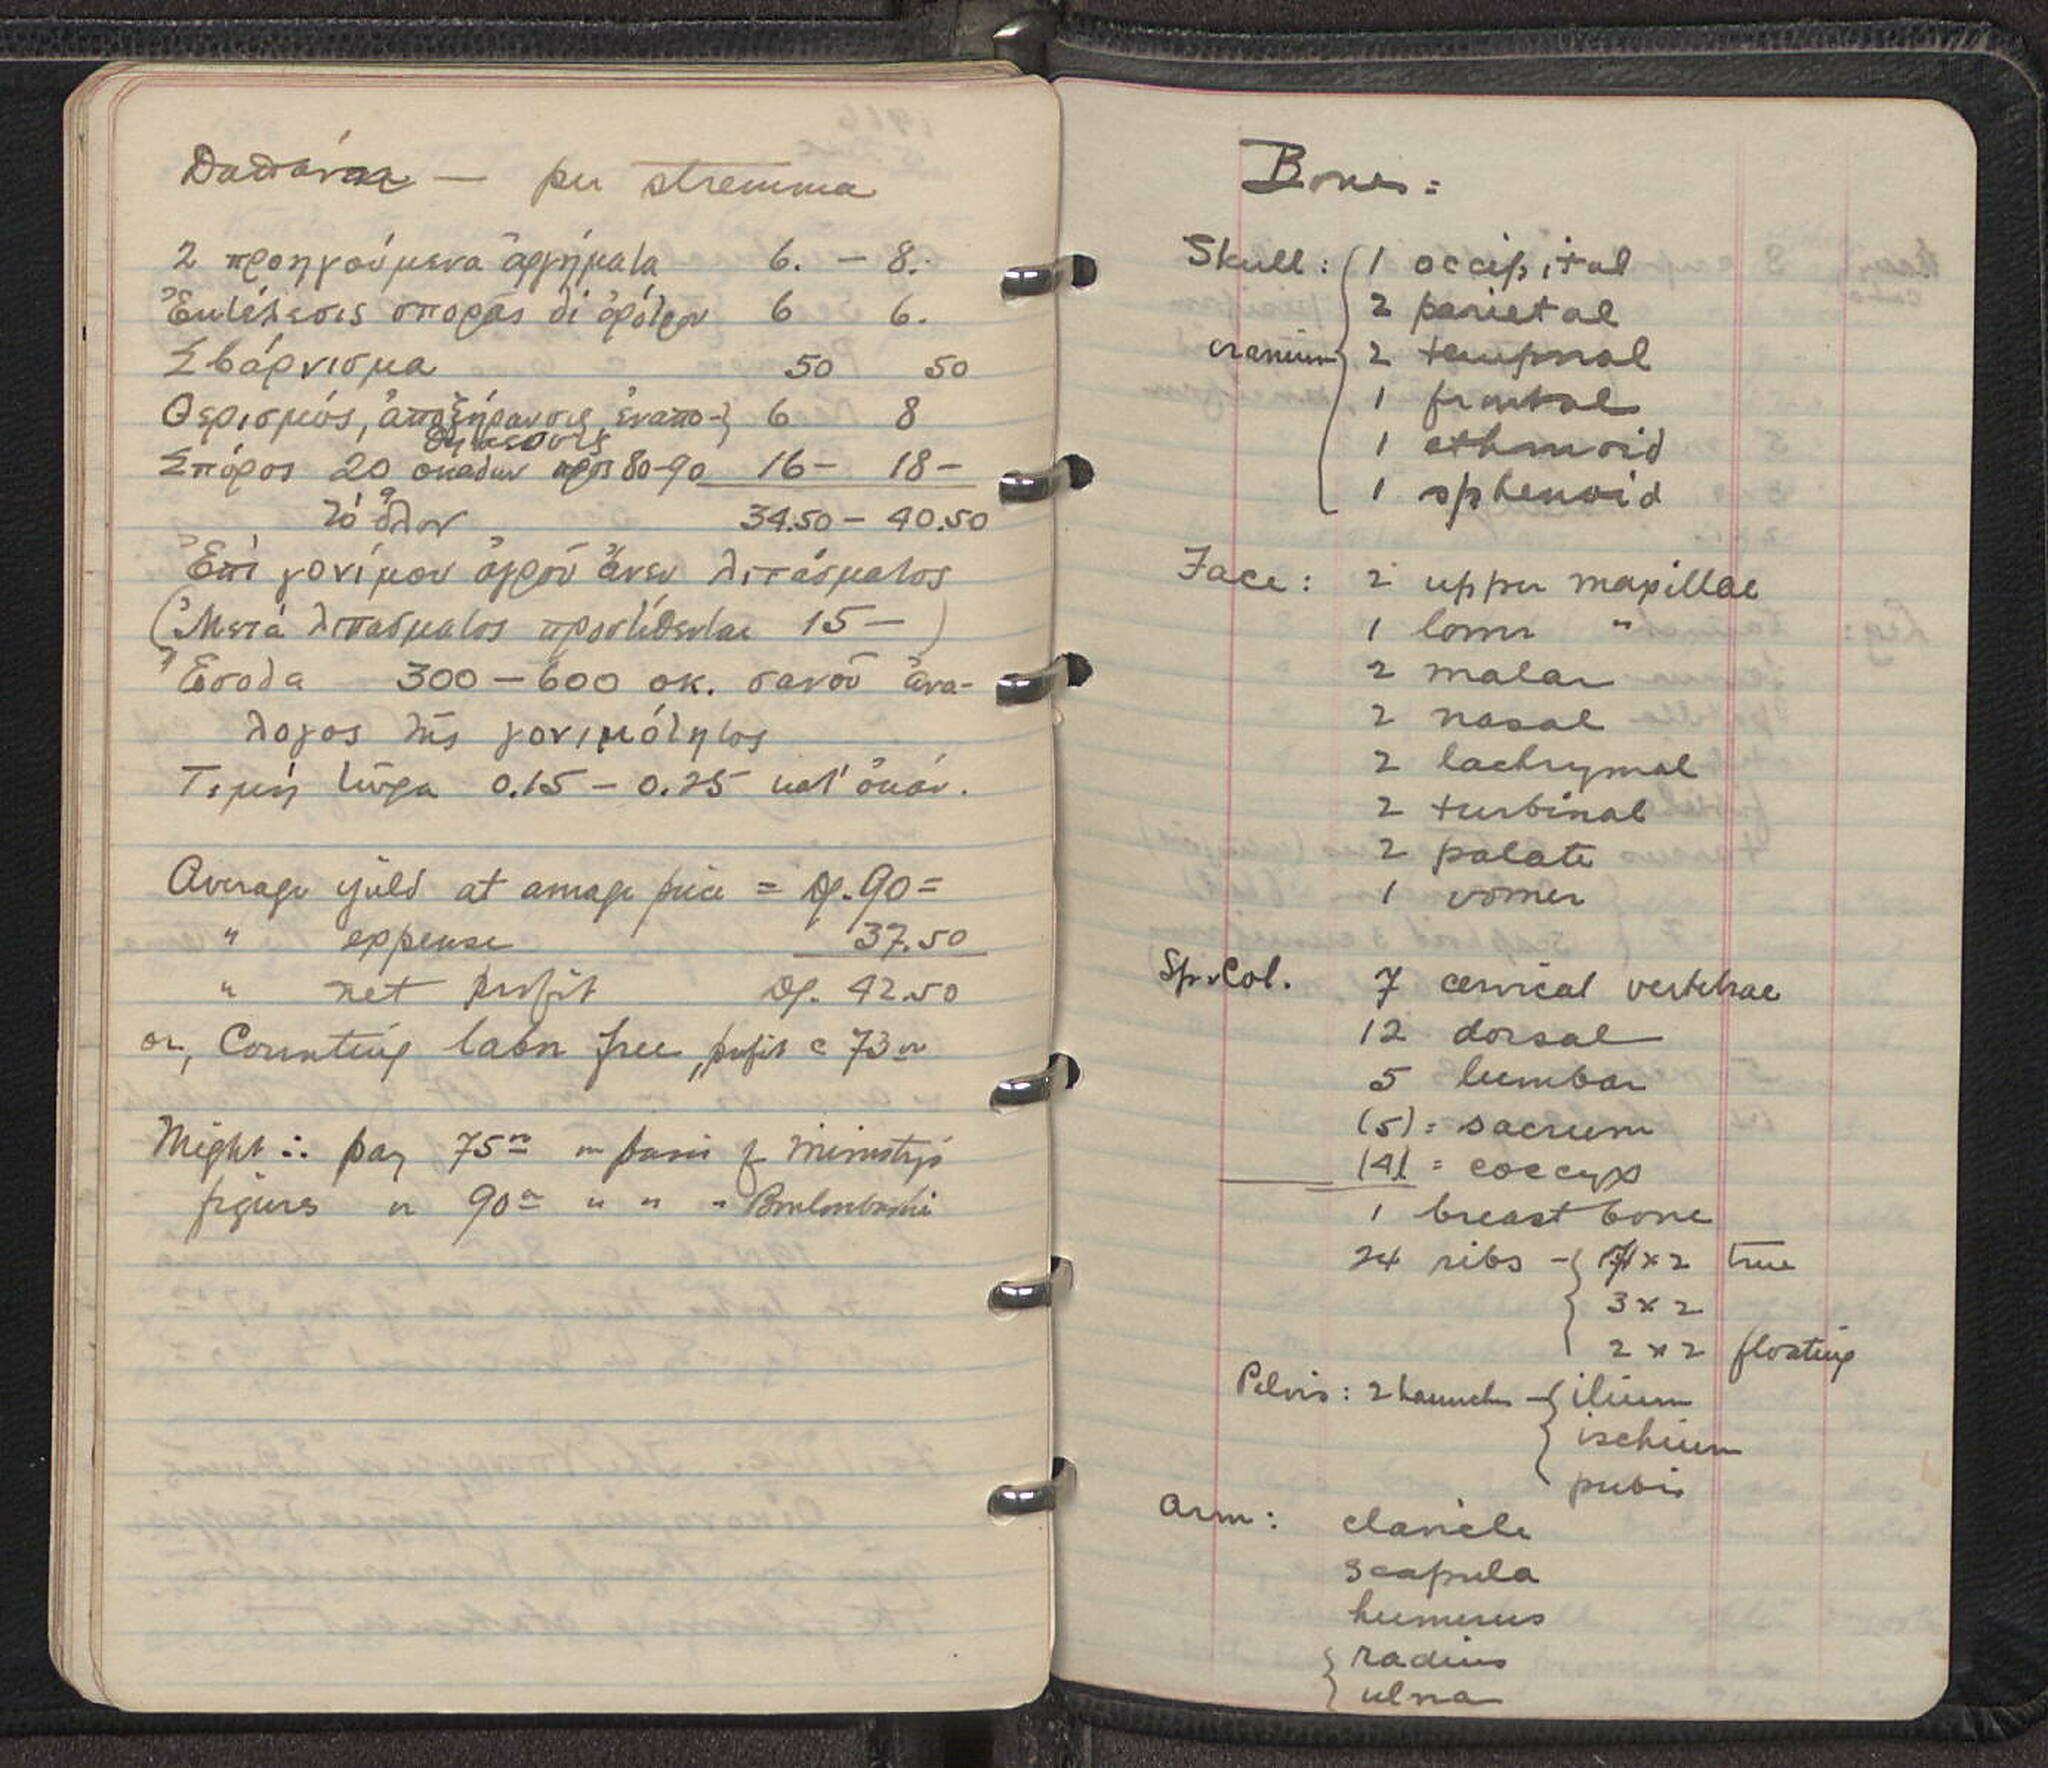 Δαπάναι — per stremma
2 προηγούμενα ὀργήματα 6. — 8.-
Ἐκτέλεσις σπορᾶς δι' ἀρότρου 6 6.
Σβάρνισμα 50 50
Θερισμός, ἀποξήρανσις, ἐναπο-} 6 8
θήκευσις
Σπόρος 20 οκάδων πρὸς 80-90 16— 18—
τὸ ὅλον 34.50 — 40.50
Ἐπὶ γονίμου ἀγροῦ ἄνευ λιπάσματος
(Μετὰ λιπάσματος προστίθενται 15 —)
Ἔσοδα 300 — 600 οκ. σανοῦ ἀνα-
λογος τῆς γονιμότητος
Τιμὴ τώρα 0.15 — 0.25 κατ' ὀκάν.
Average yield at average price = Δρ. 90=
" expense 37.50
" net profit Δρ. 42.50
or, Counting labor free, profit c 73
Might ∴ pay 75 on basis of Ministry's
figures or 90 " " "
Bones:
Skull: { 1 occipital
2 parietal
cranium 2 temporal
1 frontal
1 ethmoid
1 sphenoid
Face: 2 upper maxillae
1 lower "
2 malar
2 nasal
2 lachrymal
2 turbinal
2 palate
1 vomer
Sp. Col. 7 cervical vertebrae
12 dorsal
5 lumbar
(5) = sacrum
(4) = coccyx
1 breast bone
24 ribs — { 7 x 2 true
3 x 2
2 x 2 floating
Pelvis: 2 haunches — { ilium
ischium
pubis
Arm: clavicle
scapula
humerus
{ radius
ulna